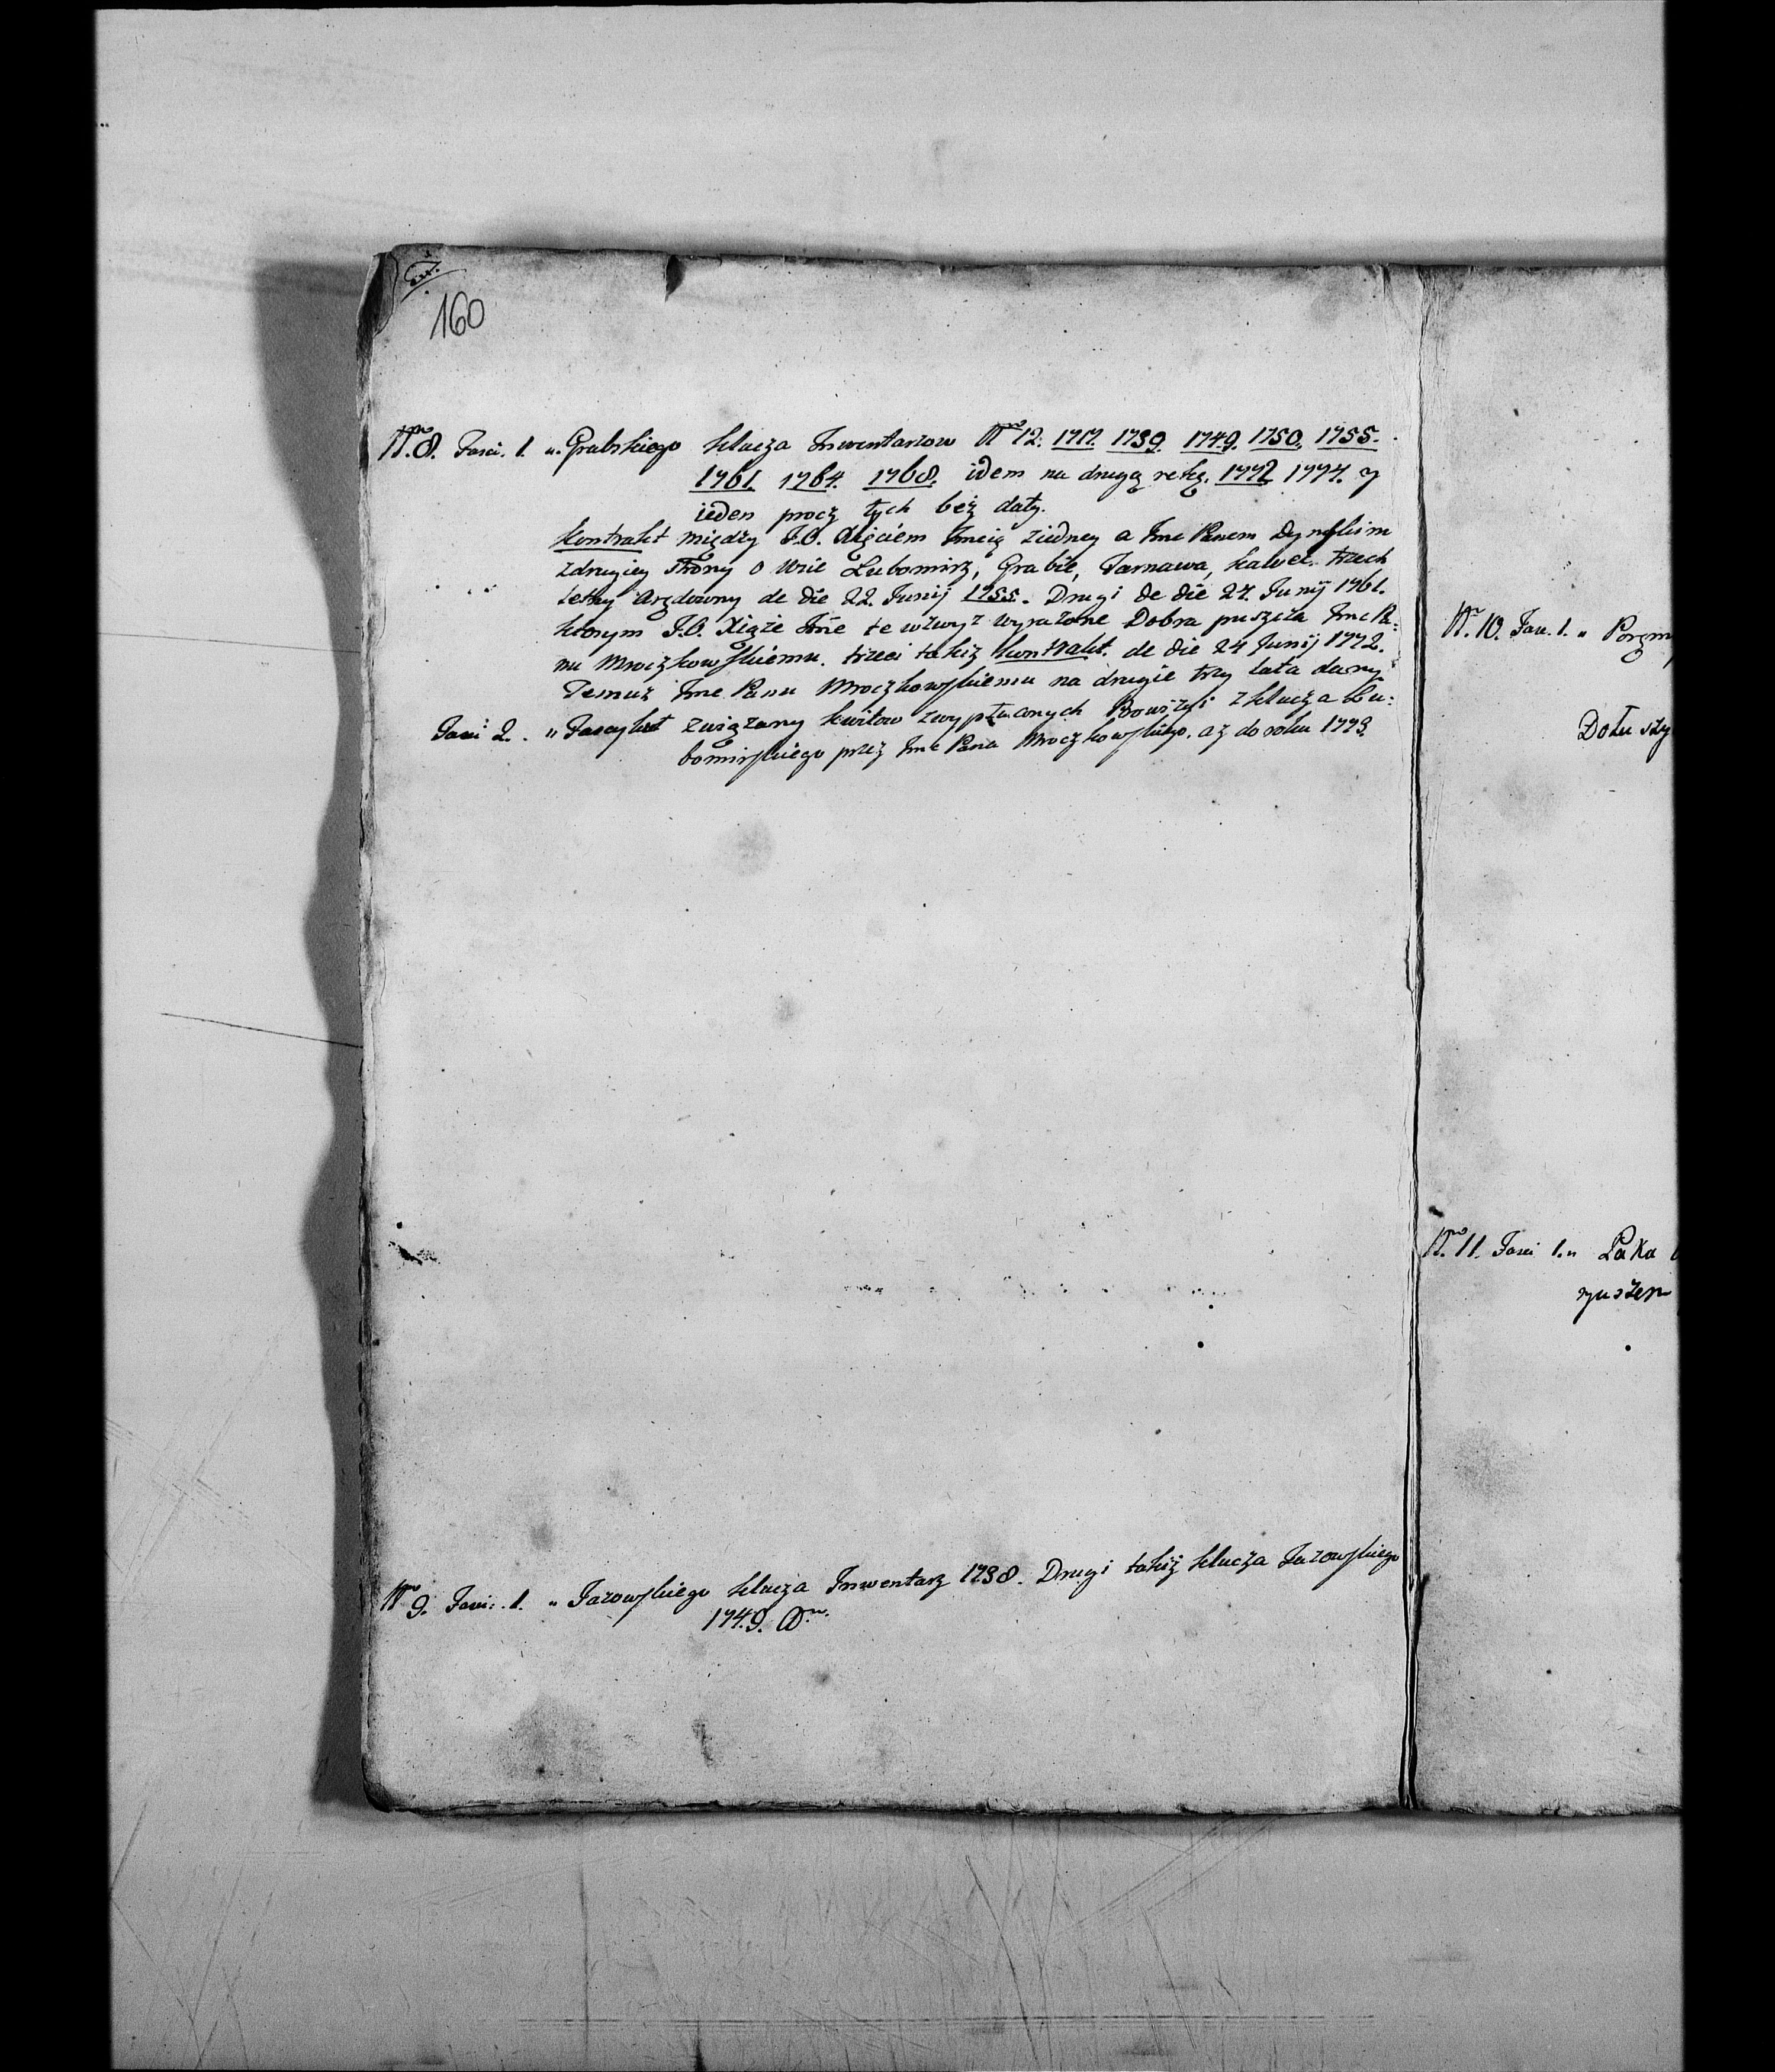 160
Nro 8. Fasci. 1. „ Grabskiego klucza Inwentarzow Nro 12. 1717. 1739. 1749. 1750. 1755.
1761. 1764. 1768. idem na drugą rękę. 1772 1774. y
ieden procz tych beż daty.
Kontrakt między J.O. Xięciem Imcią ziedney a Imc Panem
zdrugiey strony o wsie Lubomirz, Grabie, Tarnawa, trzech
letny Arędowny de die 22. Junij 1755. Drugi de die 24. Junij 1761.
ktorym J.O. Xiąże Imc te wżwyz wyrażone Dobra puszcza Imc Pa:
nu Mroczkowskiemu. trzeci takiż kontrakt. de die 24 Junij 1772.
Temuż Imc Panu Mroczkowskiemu na drugie trzy lata dany.
Fasci 2. „ Fascykuł związany kwitow zwypłaconych Prowizyi z klucza Lu:
bomirskiego przez Imc Pana Mroczkowskiego. aż do roku 1773.
Nro 9. Fasci. 1. „ Jazowskiego klucza Inwentarz 1738. Drugi takiż klucza Jazowskiego
1749.
Nro 10. Fasc. 1. „
Nro 11. Fasci 1. „